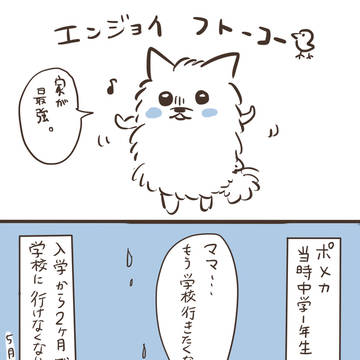 エンジョイ フトーコー
家が
最強。
ポメカ
当時中学1年生
ママ…
もう学校行きたくな
入学から2ヶ月
学校に行けなくな
5月